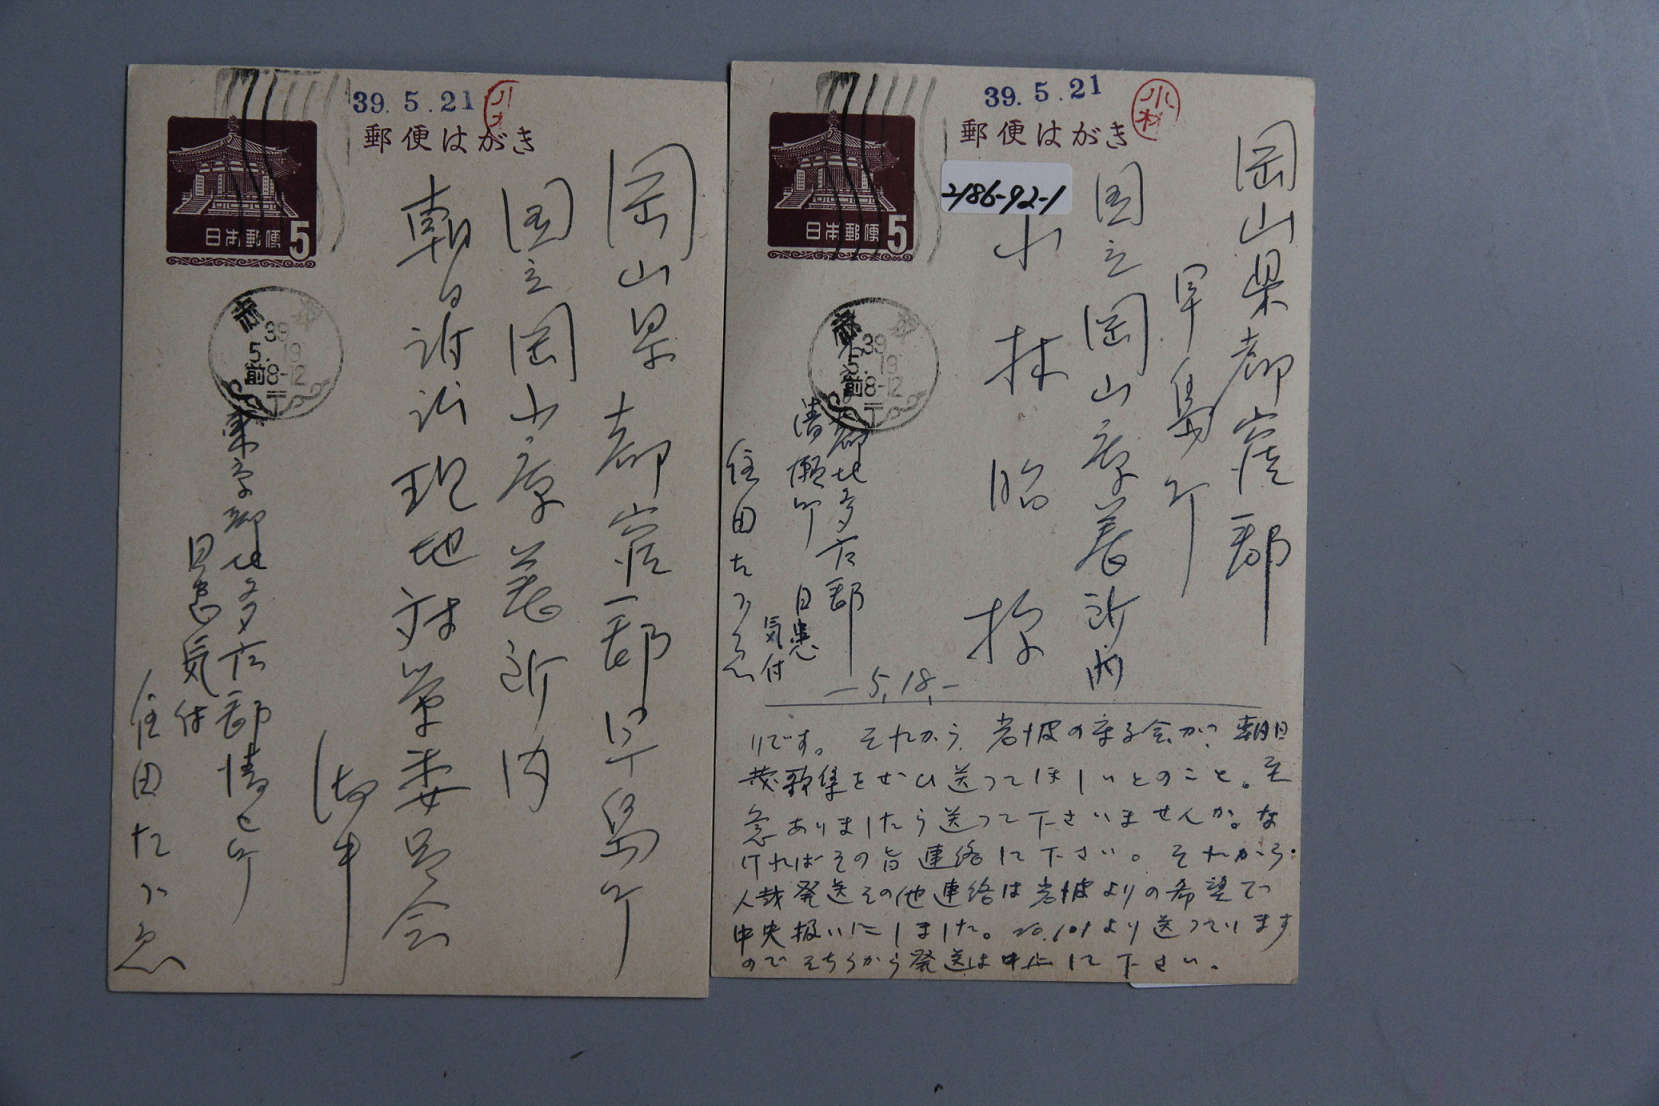 39.5.21
郵便はがき
日本郵便 5
39
5.19
前8-12
岡山県都窪郡早島町
国立岡山療養所内
朝日訴訟現地対策委員会
御中
東京都北多摩郡清セ町
日患気付
39.5.21
小林
郵便はがき
2186-92-1
日本郵便 5
39
5.19
前8-12
岡山県都窪郡
早島町
国立岡山療養所内
小林昭
様
都北多摩郡
清瀬町 日患
気付
―5.18.―
いです。それから、岩波の
歌集をぜひ送ってほしいとのこと。至
急ありましたら送って下さいませんか。な
ければその旨連絡して下さい。それから
人裁発送その他連絡は岩波よりの希望で
中央扱いにしました。No.101より送っています
のでそちらから発送は中止して下さい。